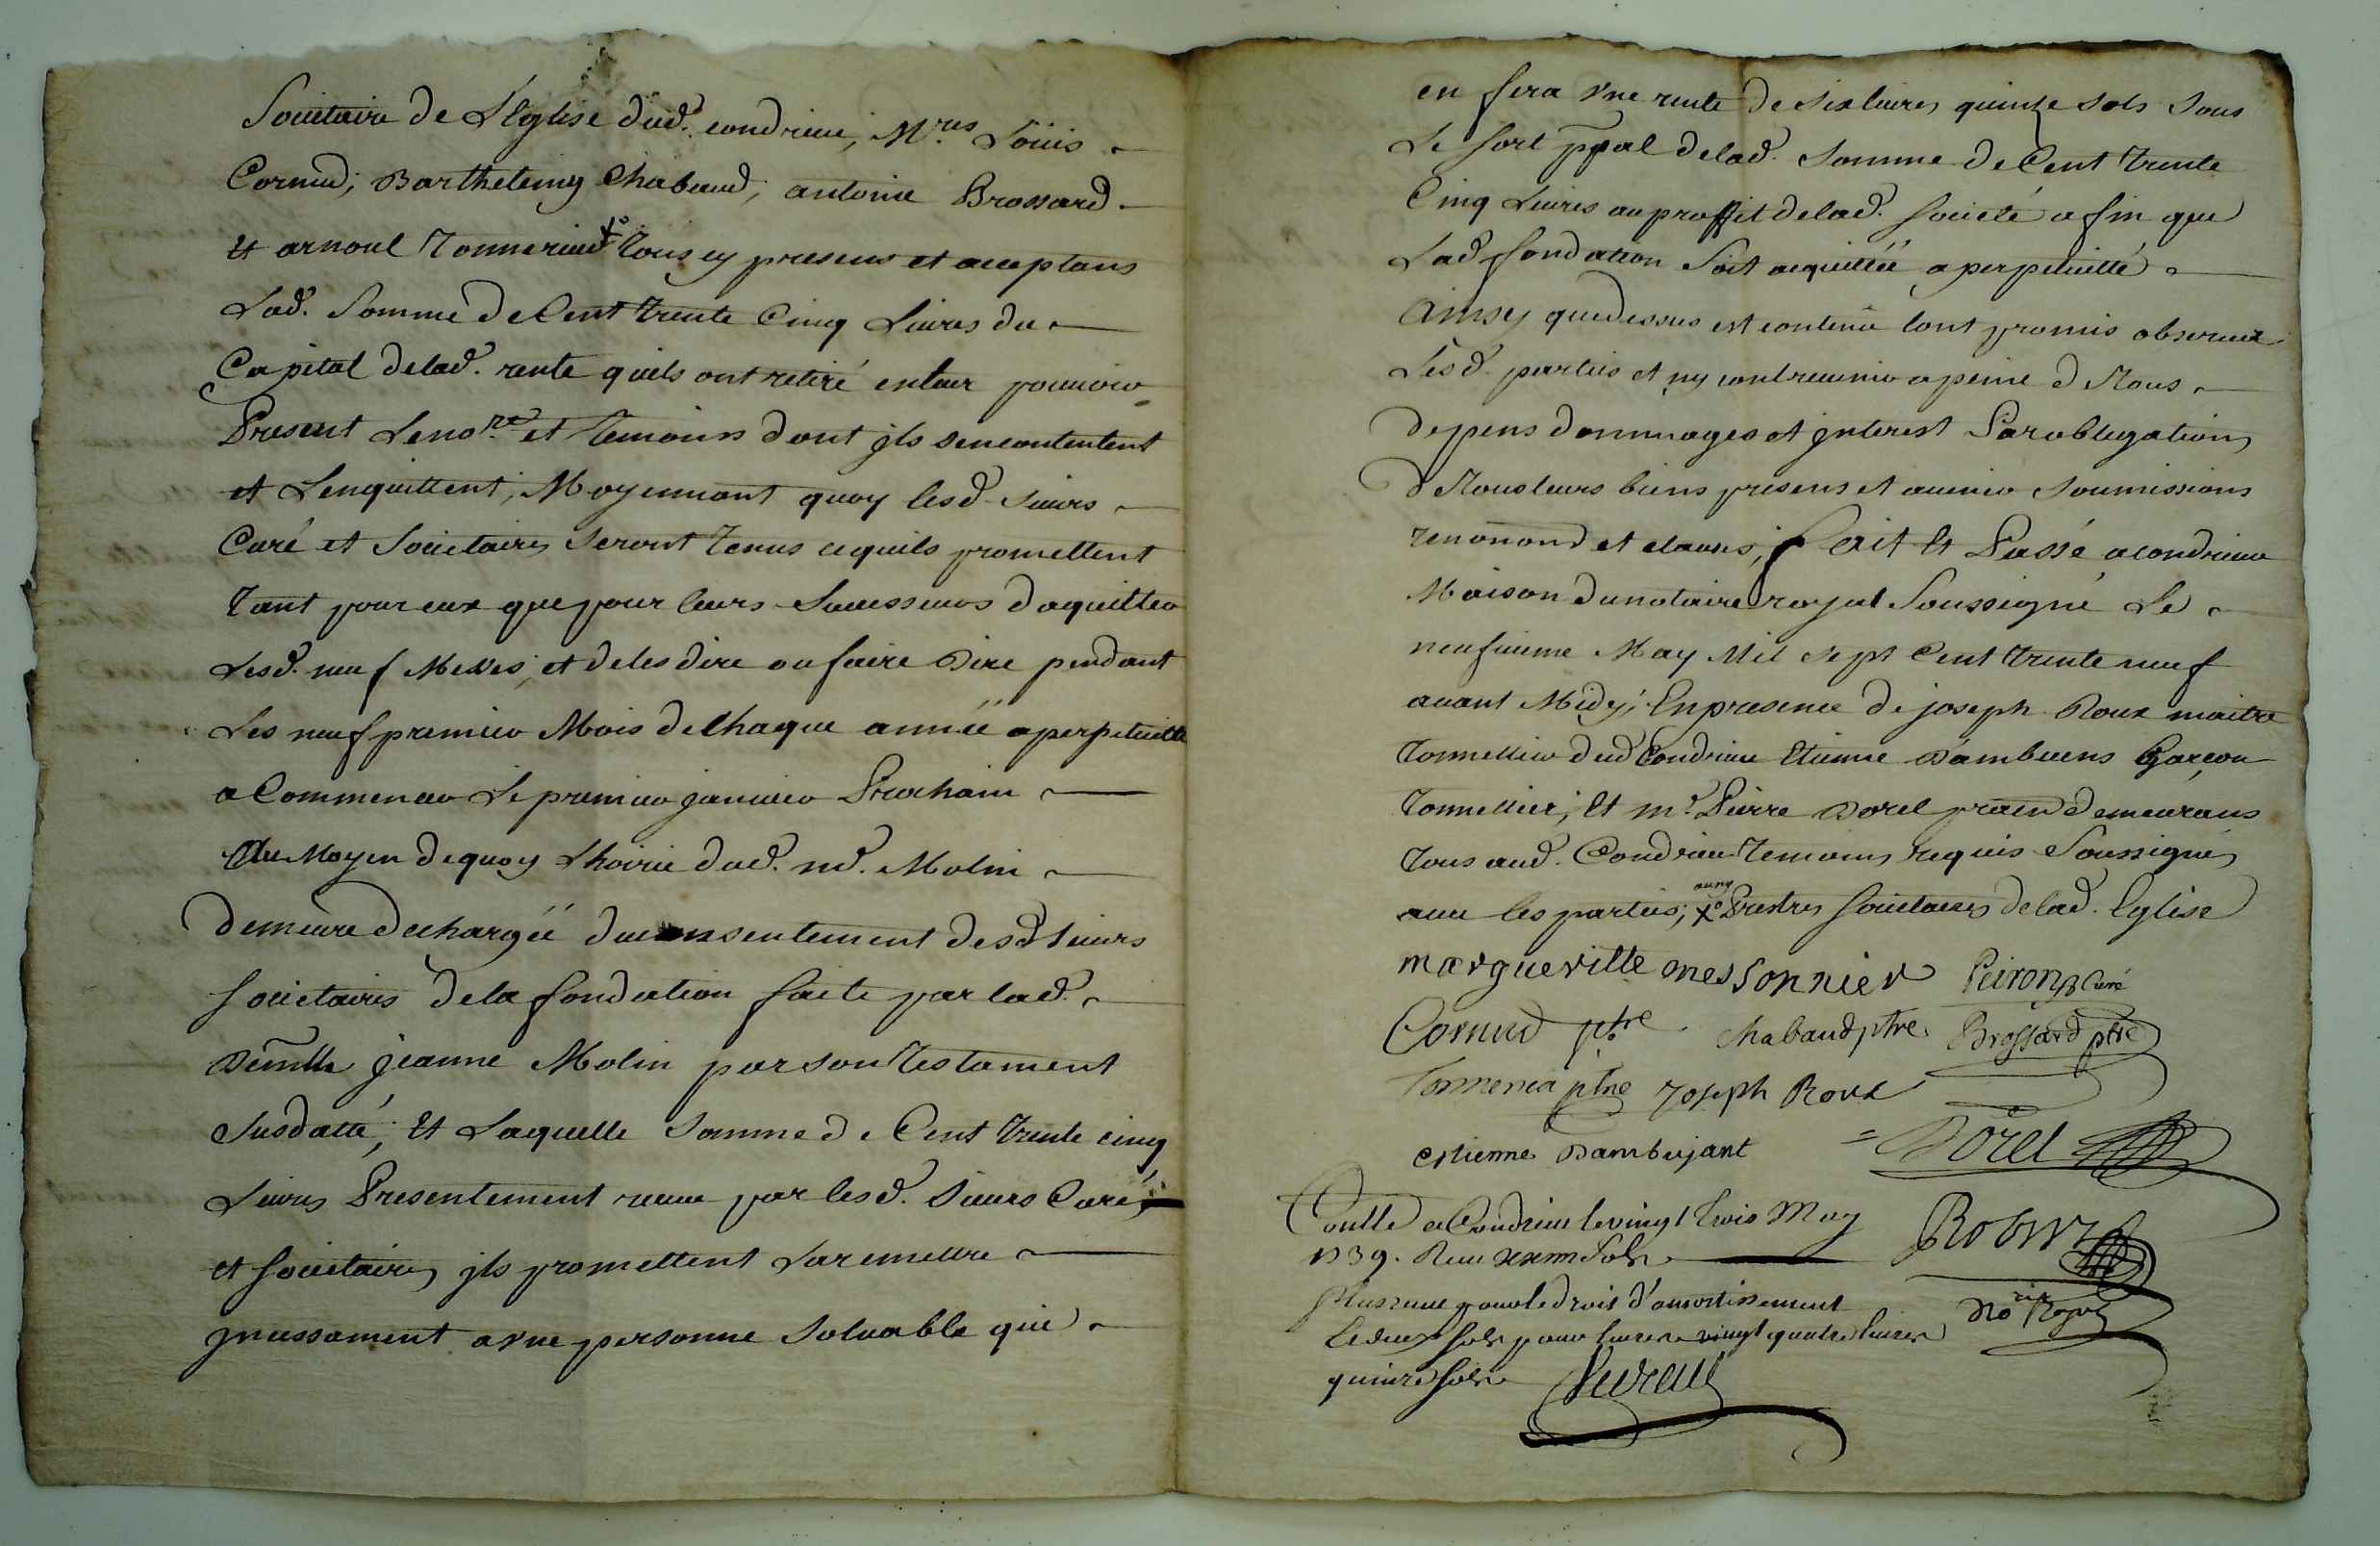 Societaire de L'Eglise dud. condrieu, Mres Loüis
Cornud; Barthelemy Chabaud; antoine Brossard
Et arnoul Tonnerieud Tous cy presens et aceptans
Lad. Somme de Cent trente Cinq Livres du
Capital delad. rente quils ont retiré enleur pouuoir
Present Leno.re et temoins dont jls sencontentent
et Lenquittent, Moyennant quoy lesd. sieurs
Curé et Societaires Seront tenus cequils promettent
Tant pour eux que pour leurs Successeurs daquitter
Lesd. neuf Messes, et deles dire ou faire Dire pendant
Les neuf premier Mois dechaque année aperpetuitté
a Commencer Le premier janvier Prochain
Au Moyen dequoy Lhoirie dud. me. Molin
demeure dechargéé du consentement desd. sieurs
societaires dela fondation faite par lad.
Demlle jeanne Molin par son Testament
susdatté; Et Laquelle Somme de Cent trente cinq
Livres Presentement receue par lesd. Sieurs Curé
et societaires jls promettent Laremettre
jncessament a vne personne Soluable qui
en fera vne rente de six liures quinze sols sous
Le sort ppal delad. Somme de Cent trente
Cinq Liures au proffit delad. societé afin que
Lad. fondation Soit acquittéé a perpetuitté
Ainsy que dessus est contenu lont promis obseruer
Lesd. parties et ny contreuenir apeine de Tous
depens dommages et jnterest Par obligations
de Tous leurs biens presens et auenir soumissions
renonond et clauses, Fait Et Passé acondrieu
Maison dunotaire royal Soussigné Le
neufuieme May Mil sept Cent trente neuf
auant Midy; En presence de joseph Roux maitre
Tonnellier dud Condrieu Etienne Dambuens Garçon
Tonnellier; Et me. Pierre Dorel praen demeurans
Tous aud. Condrieu Temoins requis Soussignés
auec les parties; Prestres societaires delad. Eglise
margueritte messonnier Peiron Curé
Cornud ptre Chabaud ptre. Brossard ptre
ptre Joseph Roux
estienne Dambujant Dorel
Conllé a Condrieu levingt trois May
1739. Receu Sols
plus receu pour le droit d'amortissement
et deux sols pour liure vingt quatre liures
quinze sols
Robin
nore Royal